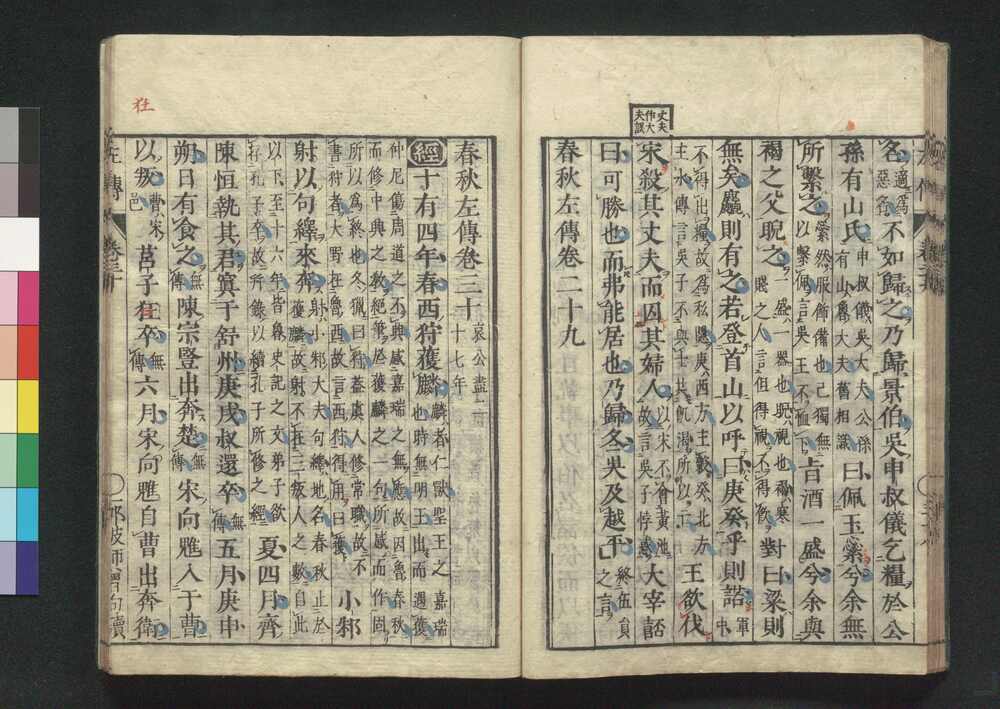 丈夫
作大
夫誤
名適為
惡名不如歸之乃歸景伯吳申叔儀乞糧於公
孫有山氏申叔儀吳大夫公孫
有山魯大夫舊相識曰佩玉繠兮余無
所繫之繠然服飾備也己獨無
以繫佩言吳王不恤下旨酒一盛兮余與
褐之父睨之一盛一器也睨視也褐寒
賤之人言但得視不得飲對曰梁則
無矣麤則有之若登首山以呼曰庚癸乎則諾軍中
不得出糧故為私隱庚西方主穀癸北方
主水傳言吳子不與士共飢渴所以亡王欲伐
宋殺其丈夫而囚其婦人以宋不會黃池
故言吳子悖惑大宰嚭
曰可勝也而弗能居也乃歸冬吳及越平終伍員
之言
春秋左傳卷二十九
春秋左傳卷三十哀公盡
十七年
經十有四年春西狩獲麟麟者仁獸聖王之嘉瑞
也時無明王出而遇獲
仲尼傷周道之不興感嘉瑞之無應故因魯春秋
而修中興之教絕筆於獲麟之一句所感而作固
所以為終也冬獵曰狩蓋虞人修常職故不
書狩者大野在魯西故言西狩得用曰獲小邾
射以句繹來奔射小邾大夫句繹地名春秋止於
獲麟故射不在三叛人之數自此
以下至十六年皆魯史記之文弟子欲
存孔子卒故并錄以續孔子所修之經夏四月齊
陳恒執其君寘于舒州庚戌叔還卒無傳五月庚申
朔日有食之無傳陳宗豎出奔楚無傳宋向魋入于曹
以叛曹宋邑莒子狂卒無傳六月宋向魋自曹出奔衛
狂
左傳
卷三十